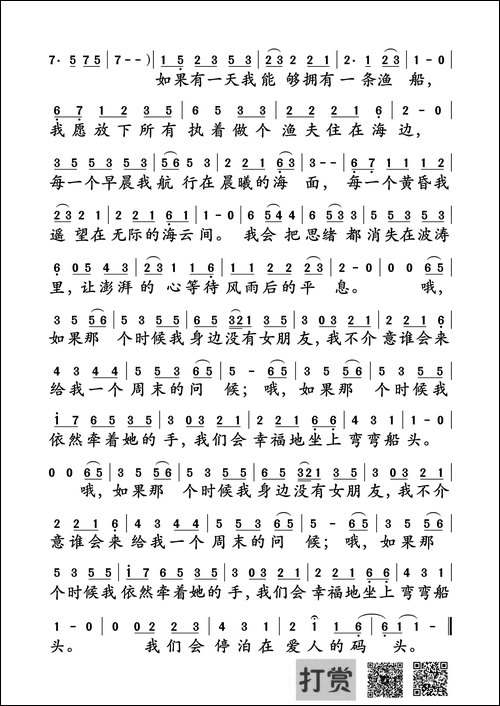 7· 5 7 5 | 7 - - ) | 1 5 2 3 5 3 | 2 3 2 2 1 | 2· 1 2 3 | 1 - 0
如果有一天我能 够拥有一条渔 船，
6 7 1 2 3 5 | 6 5 3 3 | 2 2 2 1 6 | 2 - 0
我愿放下所有执着做个 渔夫住在海边，
3 5 5 3 5 3 | 5 6 5 3 | 2 2 2 1 6 3 | 3 - - | 6 7 1 1 1 2
每一个早晨我航 行在晨曦的海 面，每一个黄昏我
2 3 2 1 | 2 2 1 6 1 | 1 - 0 | 6 5 4 4 | 6 5 3 3 | 5 5 3 5 3
遥 望在无际的海云间。 我会 把思绪 都消失在波涛
6 0 5 4 3 | 2 3 1 1 6 | 1 1 2 2 2 3 | 2 - 0 | 0 0 6 5
里，让澎湃的 心等待风雨后的平 息。 哦，
3 5 5 6 | 5 3 5 5 | 6 5 3 2 1 3 5 | 3 0 3 2 1 | 2 2 1 6
如果那 个时候我身边没有女朋友，我不介意谁会来
4 3 4 4 | 5 5 5 3 | 5 - 6 5 | 3 5 5 6 | 5 3 5 5
给我一个 周末的问 候；哦，如果那 个时候我
1 7 6 5 3 5 | 3 0 3 2 1 | 2 2 1 6 6 | 4 3 1 | 1 - 0
依然牵着她的手，我们会 幸福地坐上 弯弯船头。
0 0 6 5 | 3 5 5 6 | 5 3 5 5 | 6 5 3 2 1 3 5 | 3 0 3 2 1
哦，如果那 个时候我身边没有女朋友，我不介
2 2 1 6 | 4 3 4 4 | 5 5 5 3 | 5 - 6 5 | 3 5 5 6
意谁会来给我一个 周末的问 候；哦，如果那
5 3 5 5 | 1 7 6 5 3 5 | 3 0 3 2 1 | 2 2 1 6 6 | 4 3 1
个时候我依然牵着她的手，我们会 幸福地坐上弯弯船
1 - 0 | 0 0 2 2 | 6 5 4 3 | 4 3 1 | 2 1 6 | 6 1 1 -
头。 我们会停泊在爱人的码 头。
打赏